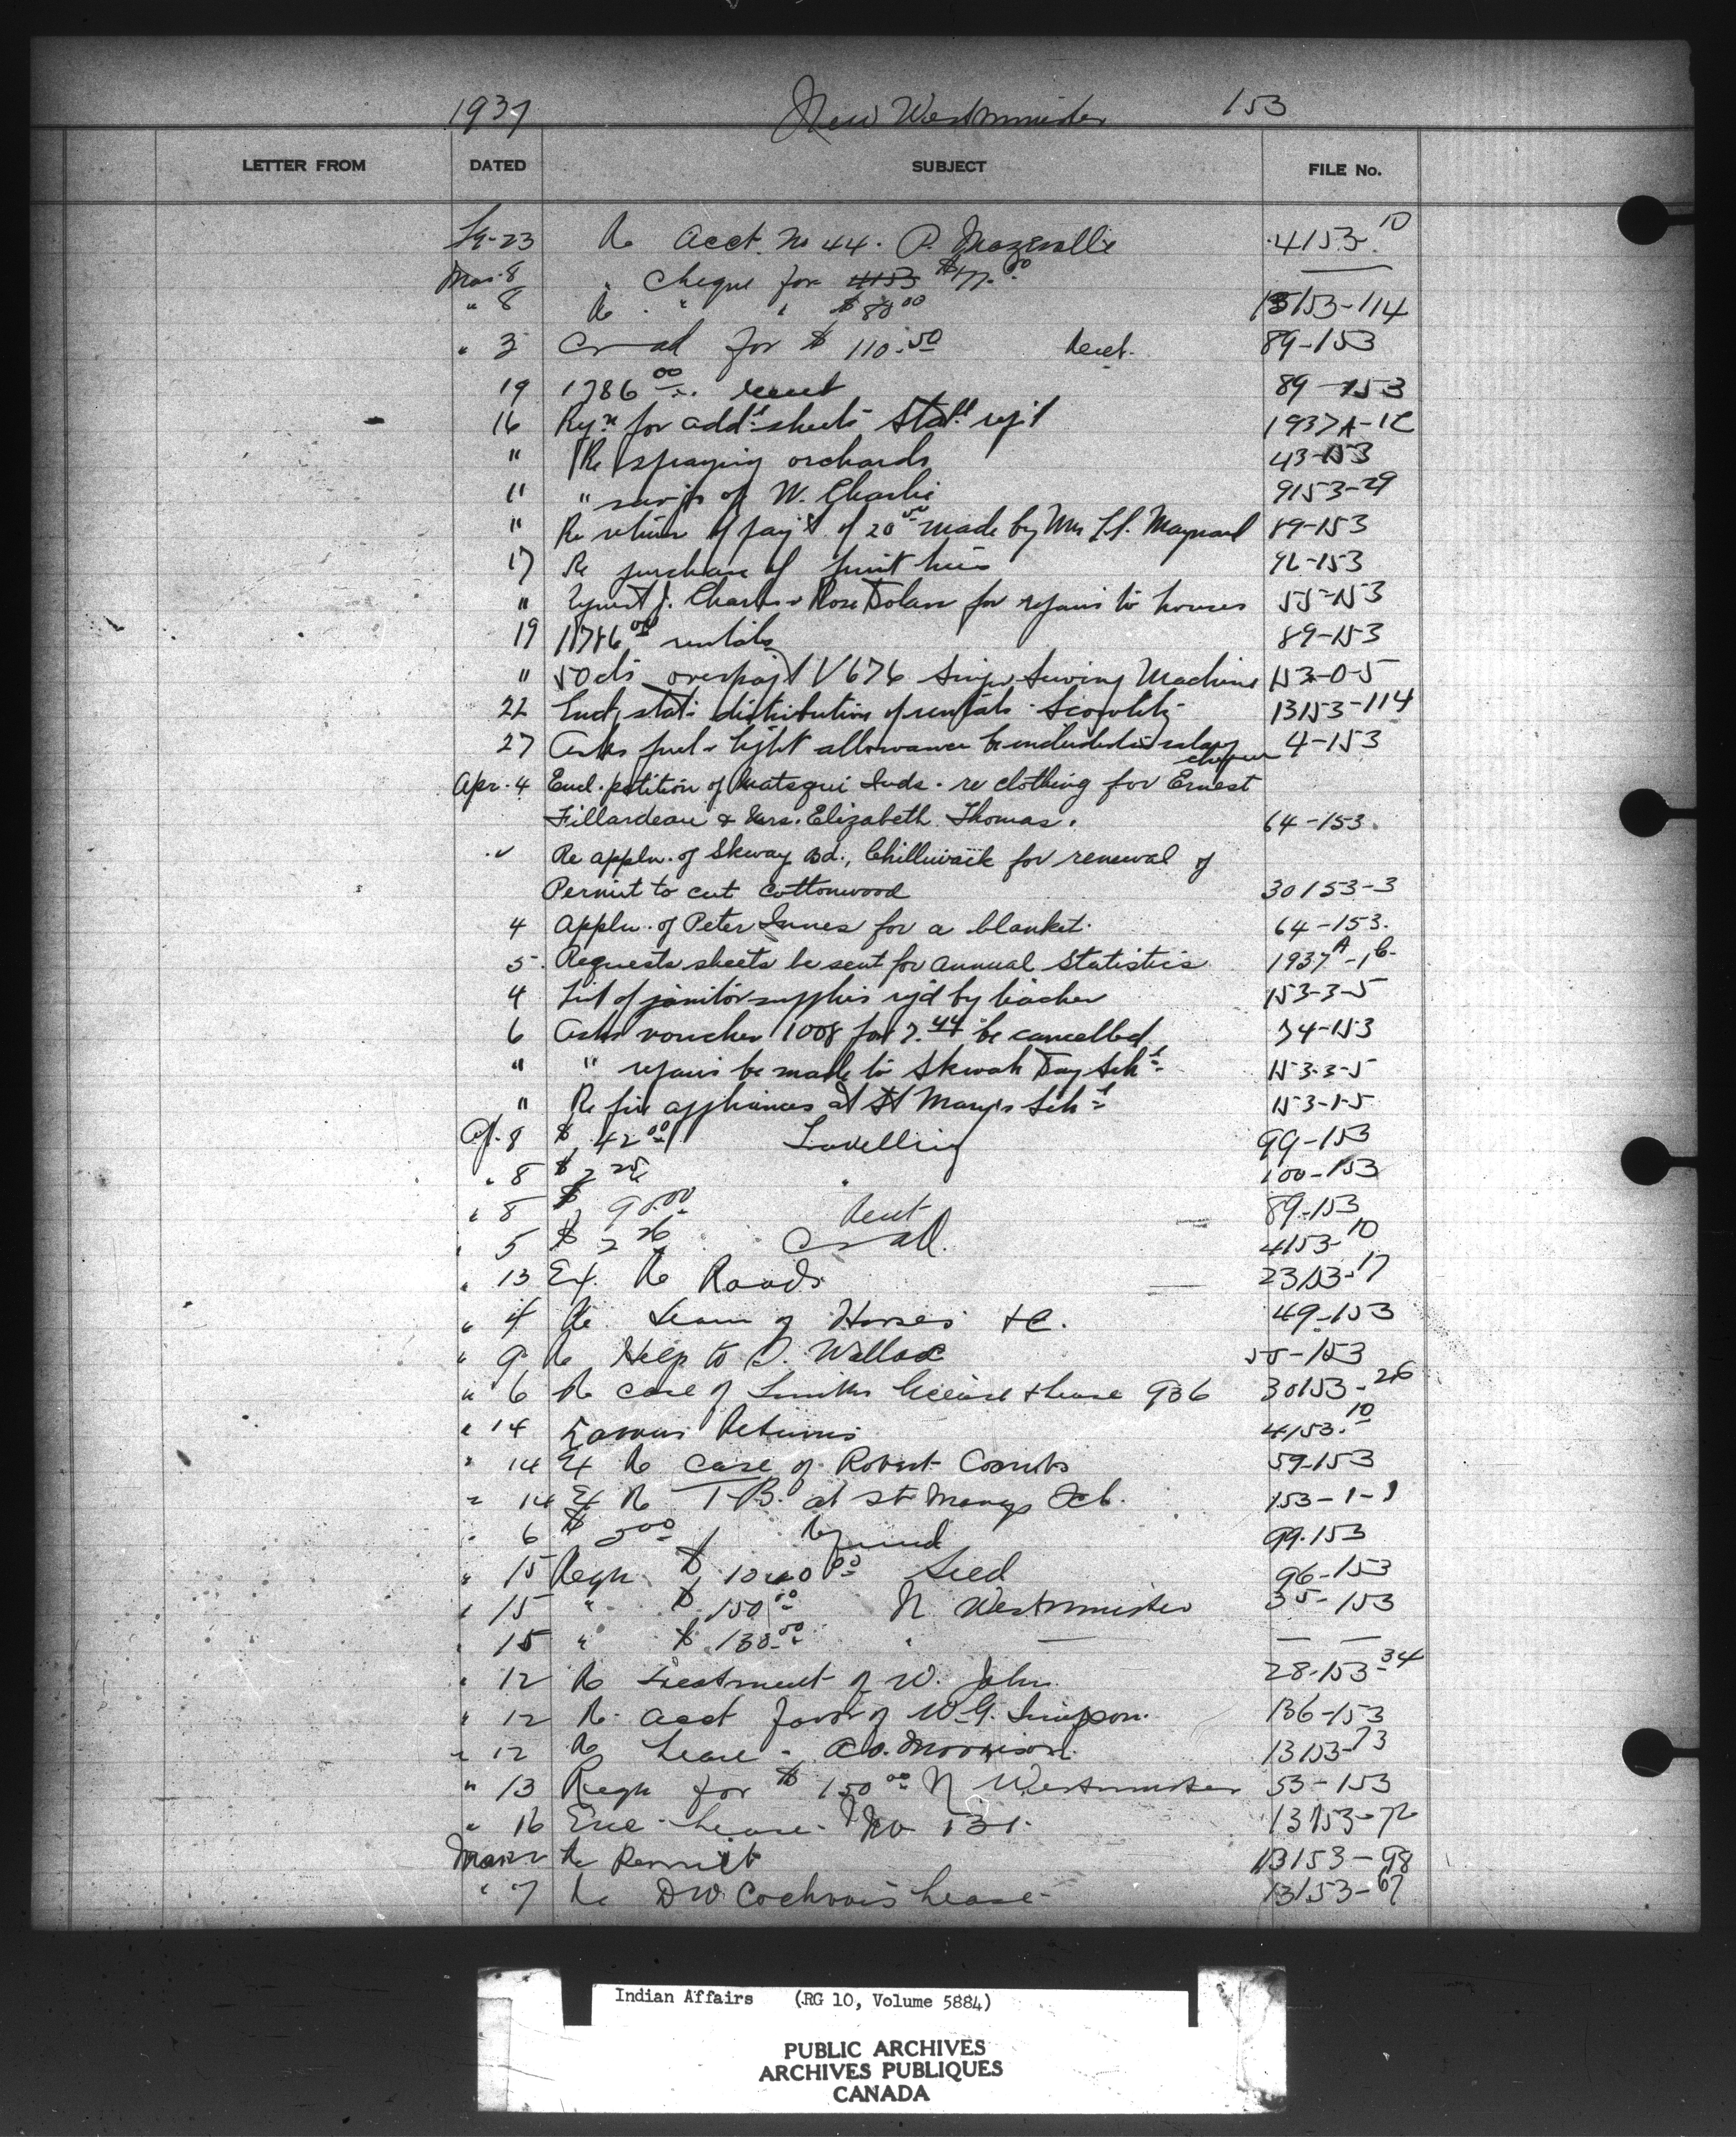 1937 New Westminster 153
LETTER FROM DATED SUBJECT FILE No.
23 Re Acct. No 44. P. 4153-10
Mar 8 " Cheque for 4153
" 8 Re " " $80.00 13153-114
" 3 for $110.50 Rent. 89-153
19 1786.00 rent 89-153
16 Reqn for addl sheets Statl rep't 1937A-1C
" Re spraying orchards 43-153
" " of W. Charlie 9153-29
" Re return of pay't of 20.00 made by Mrs Maynard 89-153
17 Re purchase of fruit trees 92-153
" J. Charles & Rose Dolan for repairs to houses 55-153
19 11786.00 rentals 89-153
" 50 cts overpay't V676 Singer Sewing Machine 153-0-5
22 Encl. stat. distribution of rentals Scowlitz 13153-114
27 Asks fuel & light allowance be included in salary cheque 4-153
Apr. 4 Encl. petition of Matsqui Inds. re clothing for Ernest
Fillardeau & Mrs. Elizabeth Thomas. 64-153.
Re appln. of Skway Bd., Chilliwack for renewal of
Permit to cut Cottonwood 30153-3
4 Appln. of Peter Innes for a blanket. 64-153.
5. Requests sheets be sent for Annual Statistics 1937A-1C
4 List of janitor supplies req'd by teacher 153-3-5
6 Asks voucher 1008 for 7.44 be cancelled 34-153
" " repairs be made to Skwah Day Schl 153-3-5
" Re fire appliances at St Mary's Schl 153-1-5
Ap. 8 $42.00 Travelling 99-153
" 8 $ " 100-153
" 8 $90.00 Rent 89-153
" 5 $2.26 4153-10
" 13 Ex. Re Roads 23153-17
" 4 Re. Team of Horses &c. 49-153
" 9 Re Help to D. Wallace 55-153
" 6 Re case of license & lease 936 30153-26
" 14 Returns 4153-10
" 14 Ex Re Case of Robert Coombs 59-153
" 14 Ex Re T.B. at St Marys Sch. 153-1-1
" 6 $5.00 Refund 99-153
" 15 Reqn $1040.00 Seed 96-153
" 15 " $150.00 N Westminster 35-153
" 15 " $130.00 "
" 12 Re Treatment of W. John 28-153-34
" 12 Re acct favor of W.G. Simpson. 136-153
" 12 Re Lease - A.D. Morrison. 13153-73
" 13 Reqn for $150.00 N Westminster 53-153
" 16 Enc. Lease. No 131. 13153-72
Mar 2 Re Permit 13153-98
" 7 Re DW Cochrane's Lease 13153-67
Indian Affairs (RG 10, Volume 5884)
PUBLIC ARCHIVES
ARCHIVES PUBLIQUES
CANADA